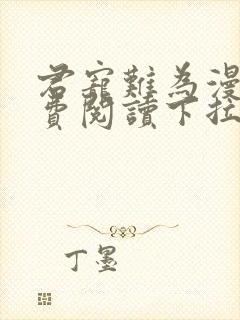 君寵難為漫
費閱讀下拉
丁墨